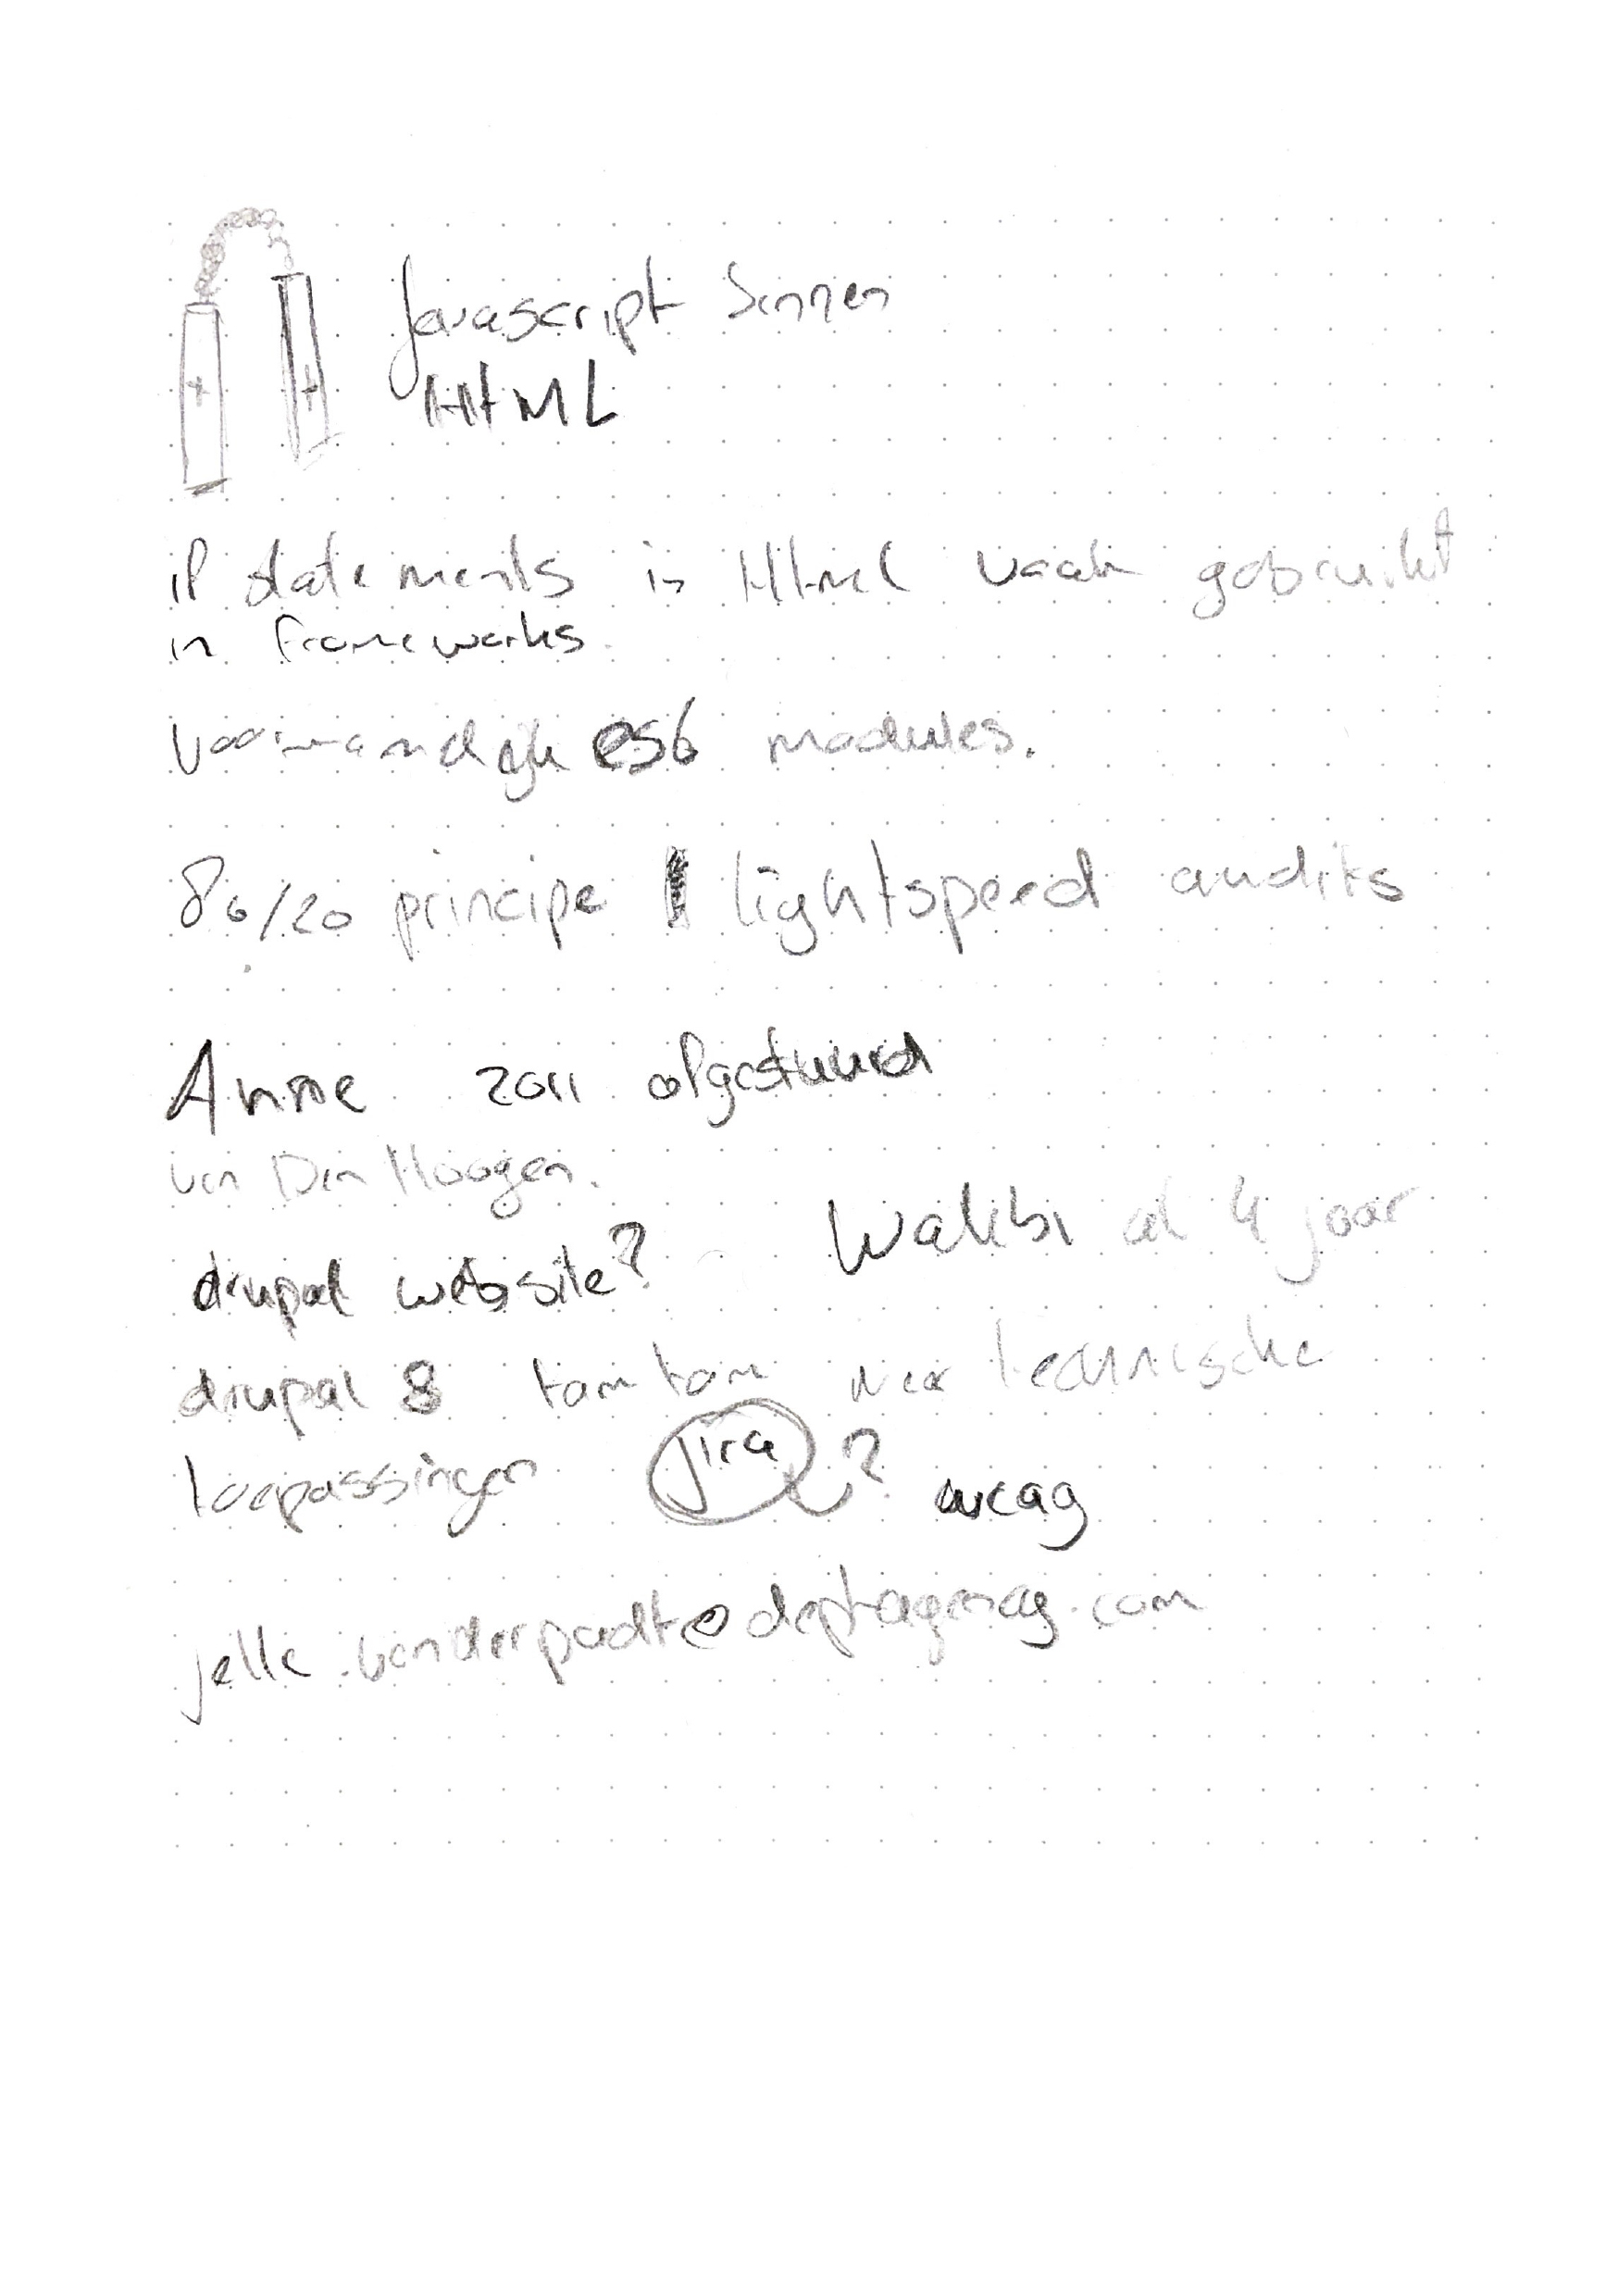 Javascript binnen
HTML
if statements in Html vaak gebruikt
in frameworks.
voornamelijk es6 modules.
80/20 principe lightspeed audits
Anne 2011 afgestuurd
van Den Hoogen.
drupal website? Walibi al 4 jaar
drupal 8 tam tam meer technische
toepassingen Jira ? wcag
jelle.vanderpadt@deptagency.com